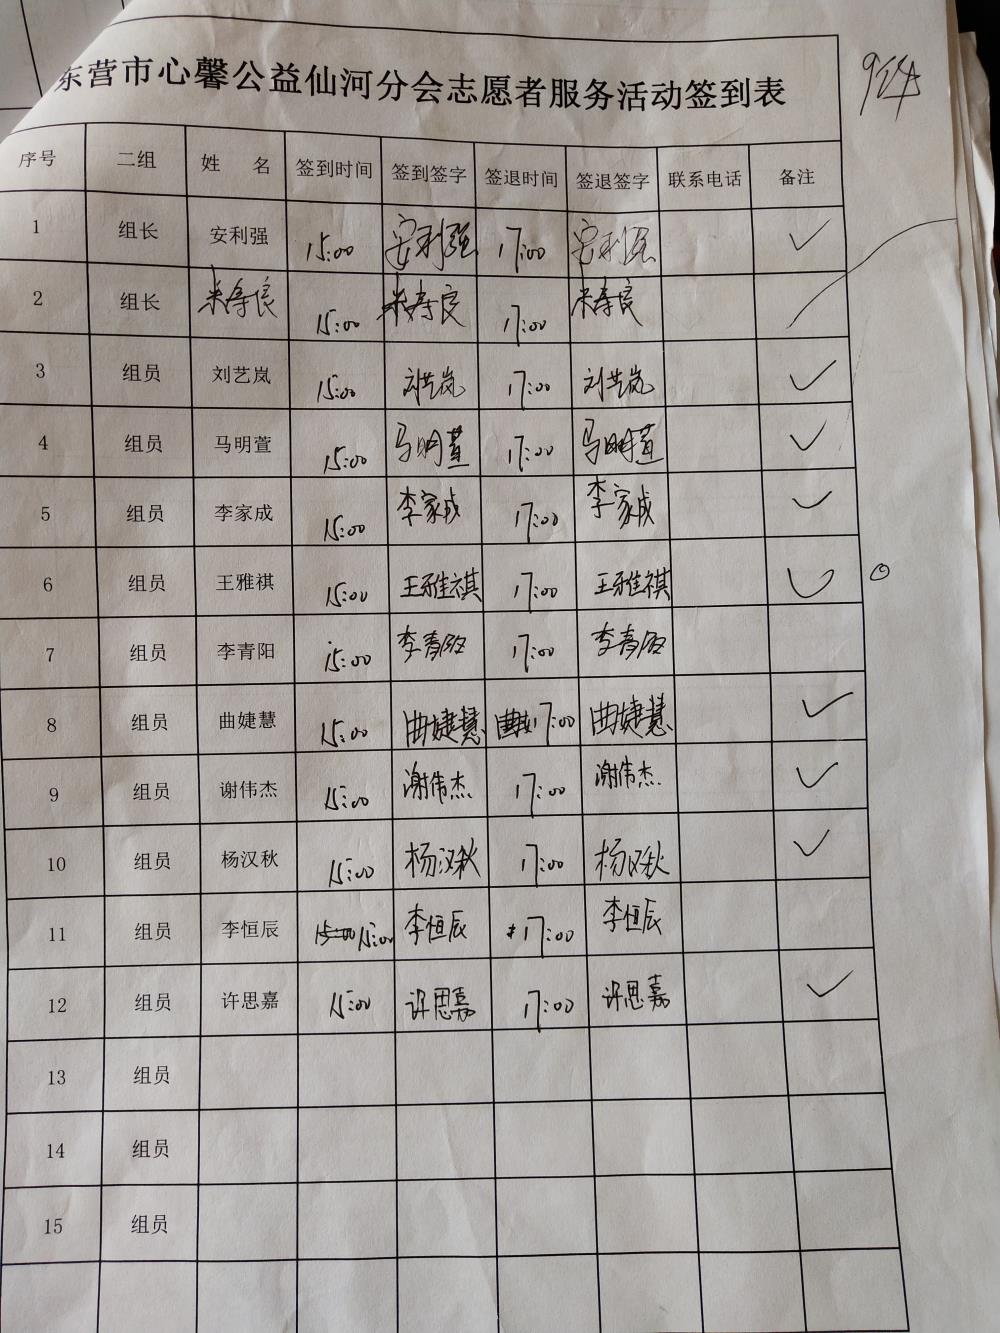 东营市心馨公益仙河分会志愿者服务活动签到表
序号 二组 姓 名 签到时间 签到签字 签退时间 签退签字 联系电话 备注
1 组长 安利强 15:00 安利强 17:00 安利强 ✓
2 组长 米寿良 15:00 米寿良 17:00 米寿良
3 组员 刘艺岚 15:00 刘艺岚 17:00 刘艺岚 ✓
4 组员 马明萱 15:00 马明萱 17:00 马明萱 ✓
5 组员 李家成 15:00 李家成 17:00 李家成 ✓
6 组员 王雅祺 15:00 王雅祺 17:00 王雅祺 ✓
7 组员 李青阳 15:00 李青阳 17:00 李青阳
8 组员 曲婕慧 15:00 曲婕慧 17:00 曲婕慧 ✓
9 组员 谢伟杰 15:00 谢伟杰 17:00 谢伟杰 ✓
10 组员 杨汉秋 15:00 杨汉秋 17:00 杨汉秋 ✓
11 组员 李恒辰 15:00 15:00 李恒辰 17:00 李恒辰
12 组员 许思嘉 15:00 许思嘉 17:00 许思嘉 ✓
13 组员
14 组员
15 组员